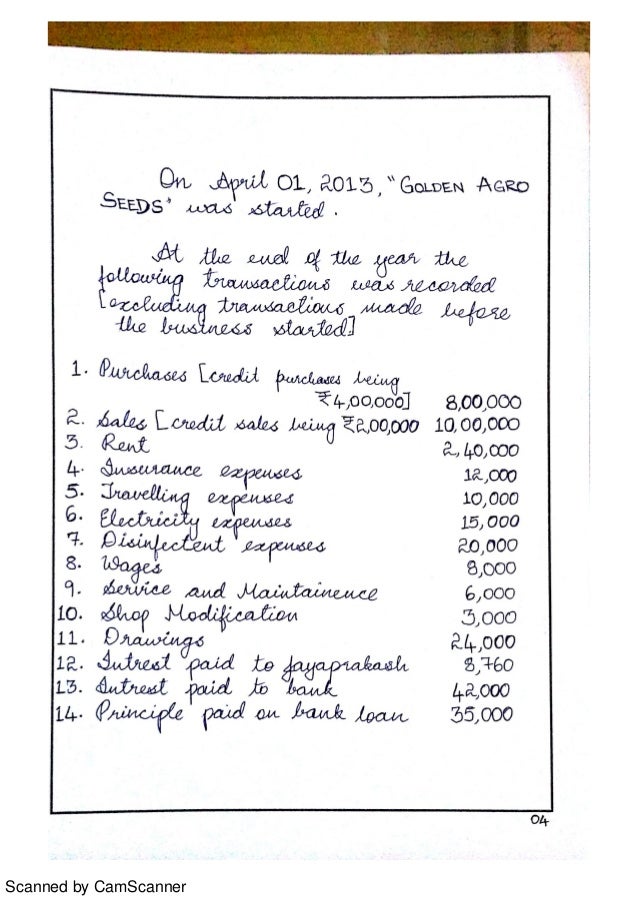 On April 01, 2013, "GOLDEN AGRO
SEEDS" was started.
At the end of the year the
following transactions was recorded
[excluding transactions made before
the business started]
1. Purchases [credit purchases being
₹4,00,000] 8,00,000
2. Sales [credit sales being ₹2,00,000 10,00,000
3. Rent 2,40,000
4. Insurance expenses 12,000
5. Travelling expenses 10,000
6. Electricity expenses 15,000
7. Disinfectent expenses 20,000
8. Wages 8,000
9. Service and Maintainence 6,000
10. Shop Modification 3,000
11. Drawings 24,000
12. Intrest paid to Jayaprakash 8,760
13. Intrest paid to bank 42,000
14. Principle paid on bank loan 35,000
04
Scanned by CamScanner